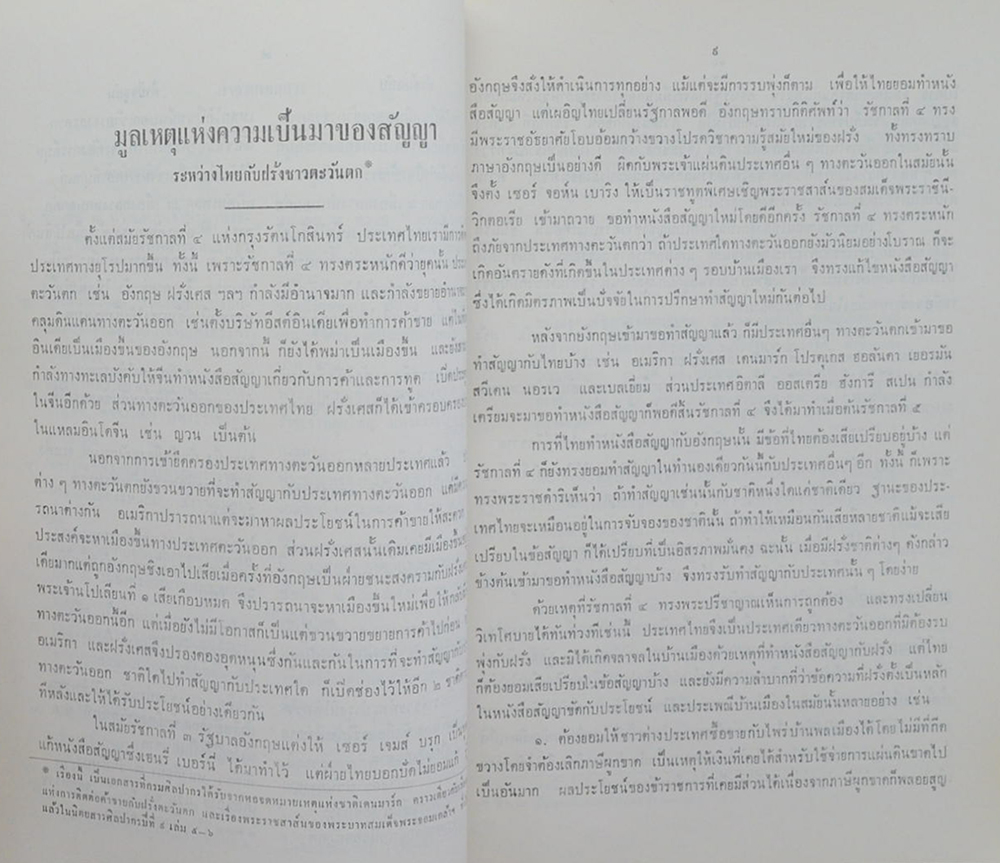 มูลเหตุแห่งความเป็นมาของสัญญา
ระหว่างไทยกับฝรั่งชาวตะวันตก*
ตั้งแต่สมัยรัชกาลที่ ๔ แห่งกรุงรัตนโกสินทร์ ประเทศไทยเรามีการ
ประเทศทางยุโรปมากขึ้น ทั้งนี้ เพราะรัชกาลที่ ๔ ทรงตระหนักดีว่ายุคนั้น
ตะวันตก เช่น อังกฤษ ฝรั่งเศส ฯลฯ กำลังมีอำนาจมาก และกำลังขยายอำนาจ
คลุมดินแดนทางตะวันออก เช่นตั้งบริษัทอีสต์อินเดียเพื่อทำการค้าขาย แต่
อินเดียเป็นเมืองขึ้นของอังกฤษ นอกจากนี้ ก็ยังได้พม่าเป็นเมืองขึ้น และ
กำลังทางทะเลบังคับให้จีนทำหนังสือสัญญาเกี่ยวกับการค้าและการทูต
ในจีนอีกด้วย ส่วนทางตะวันออกของประเทศไทย ฝรั่งเศสก็ได้เข้าครอบครอง
ในแหลมอินโดจีน เช่น ญวน เป็นต้น
นอกจากการเข้ายึดครองประเทศทางตะวันออกหลายประเทศแล้ว
ต่าง ๆ ทางตะวันตกยังขวนขวายที่จะทำสัญญากับประเทศทางตะวันออก
รถนาต่างกัน อเมริกาปรารถนาแต่จะมาหาผลประโยชน์ในการค้าขายให้สะดวก
ประสงค์จะหาเมืองขึ้นทางประเทศตะวันออก ส่วนฝรั่งเศสนั้นเดิมเคยมีเมืองขึ้น
เดียมากแต่ถูกอังกฤษชิงเอาไปเสียเมื่อครั้งที่อังกฤษเป็นฝ่ายชนะสงครามกับฝรั่งเศส
พระเจ้านโปเลียนที่ ๑ เสียเกือบหมด จึงปรารถนาจะหาเมืองขึ้นใหม่เพื่อให้
ทางตะวันออกนี้อีก แต่เมื่อยังไม่มีโอกาสก็เป็นแต่ขวนขวายขยายการค้าไปก่อน
อเมริกา และฝรั่งเศสจึงปรองดองอุดหนุนซึ่งกันและกันในการที่จะทำสัญญากับ
ทางตะวันออก ชาติใดไปทำสัญญากับประเทศใด ก็เปิดช่องไว้ให้อีก ๒ ชาติ
ทีหลังและให้ได้รับประโยชน์อย่างเดียวกัน
ในสมัยรัชกาลที่ ๓ รัฐบาลอังกฤษแต่งให้ เซอร์ เจมส์ บรุก
แก้หนังสือสัญญาซึ่งเฮนรี่ เบอร์นี่ ได้มาทำไว้ แต่ฝ่ายไทยบอกปัดไม่ยอมแก้
* เรื่องนี้ เป็นเอกสารที่กรมศิลปากรได้รับจากหอจดหมายเหตุแห่งชาติเดนมาร์ก
แห่งการติดต่อค้าขายกับฝรั่งตะวันตก และเรื่องพระราชสาส์นของพระบาทสมเด็จพระจอมเกล้าฯ
แล้วในนิตยสารศิลปากรปีที่ ๔ เล่ม ๕-๖
๙
อังกฤษจึงสั่งให้ดำเนินการทุกอย่าง แม้แต่จะมีการรบพุ่งก็ตาม เพื่อให้ไทยยอมทำหนัง
สือสัญญา แต่เผอิญไทยเปลี่ยนรัฐกาลพอดี อังกฤษทราบกิติศัพท์ว่า รัชกาลที่ ๔ ทรง
มีพระราชอัธยาศัยโอบอ้อมกว้างขวางโปรดวิชาความรู้สมัยใหม่ของฝรั่ง ทั้งทรงทราบ
ภาษาอังกฤษเป็นอย่างดี ผิดกับพระเจ้าแผ่นดินประเทศอื่น ๆ ทางตะวันออกในสมัยนั้น
จึงตั้ง เซอร์ จอห์น เบาริง ให้เป็นราชทูตพิเศษเชิญพระราชสาส์นของสมเด็จพระราชินี-
วิกตอเรีย เข้ามาถวาย ขอทำหนังสือสัญญาใหม่โดยดีอีกครั้ง รัชกาลที่ ๔ ทรงตระหนัก
ถึงภัยจากประเทศทางตะวันตกว่า ถ้าประเทศใดทางตะวันออกยังมัวนิยมอย่างโบราณ ก็จะ
เกิดอันตรายดังที่เกิดขึ้นในประเทศต่าง ๆ รอบบ้านเมืองเรา จึงทรงแก้ไขหนังสือสัญญา
ซึ่งได้เกิดมิตรภาพเป็นปัจจัยในการปรึกษาทำสัญญาใหม่กันต่อไป
หลังจากอังกฤษเข้ามาขอทำสัญญาแล้ว ก็มีประเทศอื่นๆ ทางตะวันตกเข้ามาขอ
ทำสัญญากับไทยบ้าง เช่น อเมริกา ฝรั่งเศส เดนมาร์ก โปรตุเกส ฮอลันดา เยอรมัน
สวีเดน นอรเว และเบลเยี่ยม ส่วนประเทศอิตาลี ออสเตรีย ฮังการี สเปน กำลัง
เตรียมจะมาขอทำหนังสือสัญญาก็พอดีสิ้นรัชกาลที่ ๔ จึงได้มาทำเมื่อต้นรัชกาลที่ ๕
การที่ไทยทำหนังสือสัญญากับอังกฤษนั้น มีข้อที่ไทยต้องเสียเปรียบอยู่บ้าง แต่
รัชกาลที่ ๔ ก็ยังทรงยอมทำสัญญาในทำนองเดียวกันนี้กับประเทศอื่นๆ อีก ทั้งนี้ ก็เพราะ
ทรงพระราชดำริเห็นว่า ถ้าทำสัญญาเช่นนั้นกับชาติหนึ่งใดแต่ชาติเดียว ฐานะของประ-
เทศไทยจะเหมือนอยู่ในการจับจองของชาตินั้น ถ้าทำให้เหมือนกันเสียหลายชาติแม้จะเสีย
เปรียบในข้อสัญญา ก็ได้เปรียบที่เป็นอิสรภาพมั่นคง ฉะนั้น เมื่อมีฝรั่งชาติต่างๆ ดังกล่าว
ข้างต้นเข้ามาขอทำหนังสือสัญญาบ้าง จึงทรงรับทำสัญญากับประเทศนั้น ๆ โดยง่าย
ด้วยเหตุที่รัชกาลที่ ๔ ทรงพระปรีชาญาณเห็นการถูกต้อง และทรงเปลี่ยน
วิเทโศบายได้ทันท่วงทีเช่นนี้ ประเทศไทยจึงเป็นประเทศเดียวทางตะวันออกที่มิต้องรบ
พุ่งกับฝรั่ง และมิได้เกิดจลาจลในบ้านเมืองด้วยเหตุที่ทำหนังสือสัญญากับฝรั่ง แต่ไทย
ก็ต้องยอมเสียเปรียบในข้อสัญญาบ้าง และยังมีความลำบากที่ว่าข้อความที่ฝรั่งตั้งเป็นหลัก
ในหนังสือสัญญาขัดกับประโยชน์ และประเพณีบ้านเมืองในสมัยนั้นหลายอย่าง เช่น
๑. ต้องยอมให้ชาวต่างประเทศซื้อขายกับไพร่บ้านพลเมืองได้โดยไม่มีที่กีด
ขวางโดยจำต้องเลิกภาษีผูกขาด เป็นเหตุให้เงินที่เคยได้สำหรับใช้จ่ายการแผ่นดินขาดไป
เป็นอันมาก ผลประโยชน์ของข้าราชการที่เคยมีส่วนได้เนื่องจากภาษีผูกขาดก็พลอยสูญ